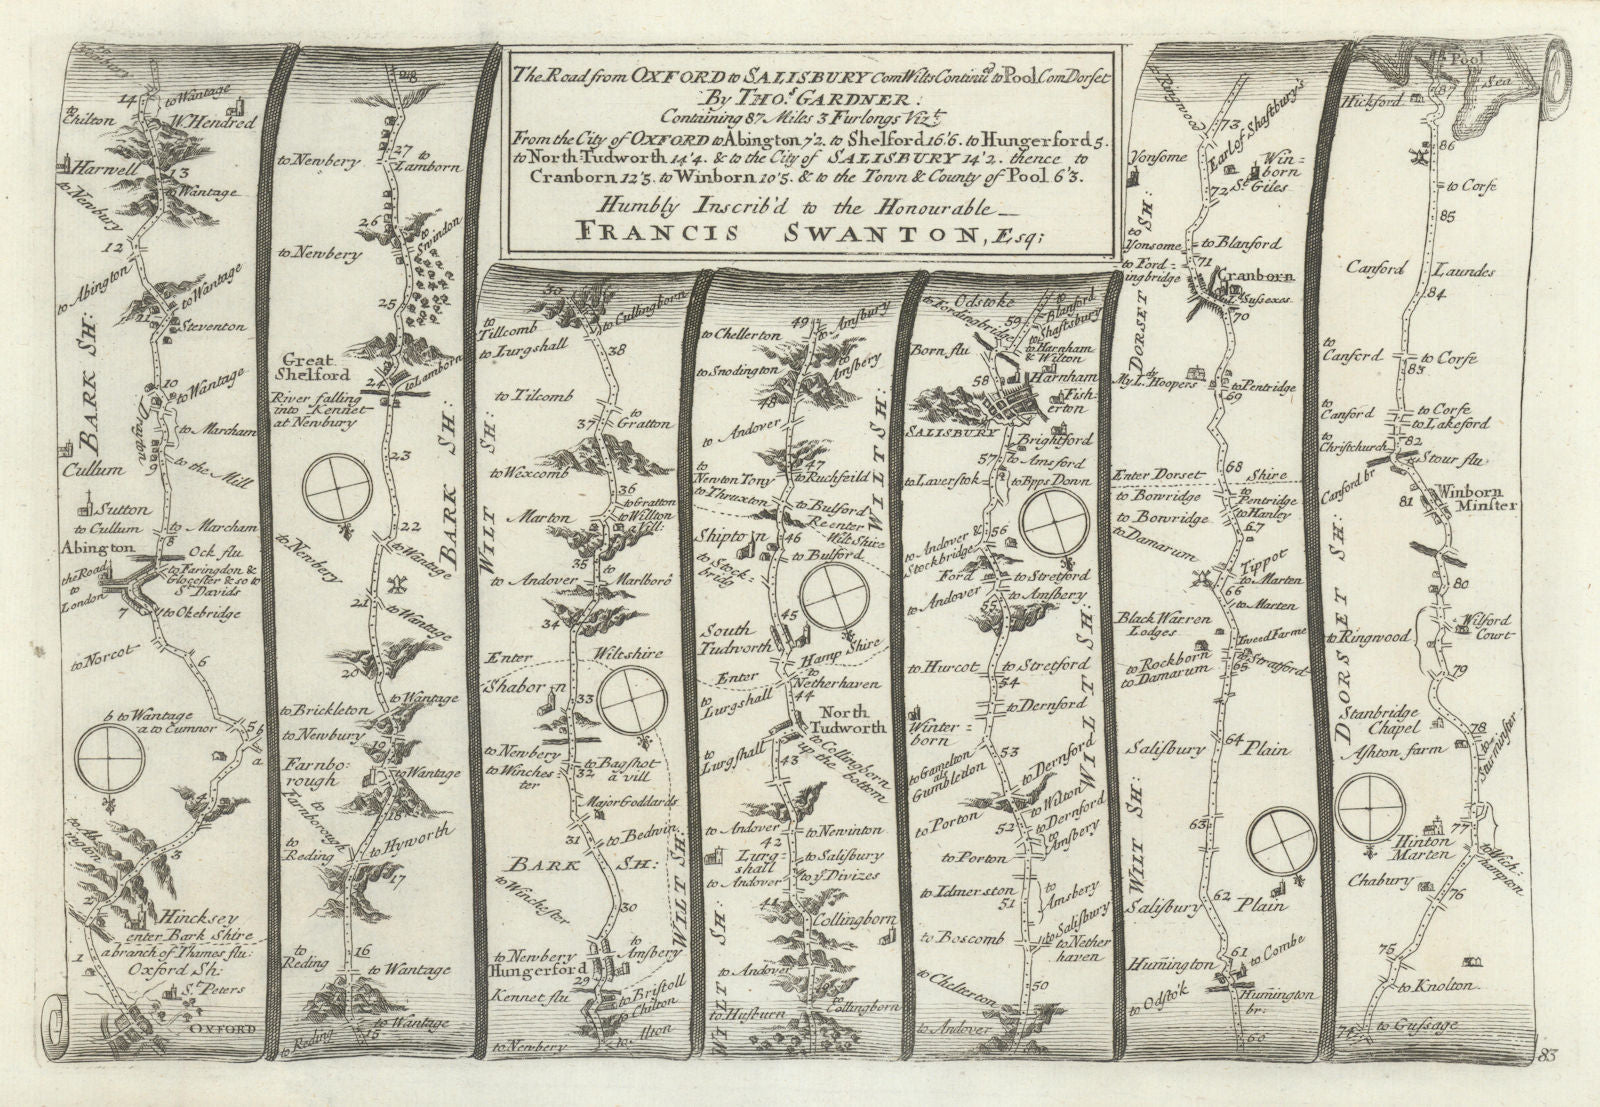 The Road from OXFORD to SALISBURY Com Wilts Continu'd to Pool Com Dorset
By THO.s GARDNER:
Containing 87 Miles 3 Furlongs Viz.t
From the City of OXFORD to Abington 7'2. to Shelford 16'6. to Hungerford 5.
to North-Tudworth 14'4. & to the City of SALISBURY 14'2. thence to
Cranborn 12'5. to Winborn 10'5. & to the Town & County of Pool 6'3.
Humbly Inscrib'd to the Honourable
FRANCIS SWANTON, Esq;
14
to Wantage
to Chilton
W. Hendred
Harwell
13
to Newbury
to Wantage
12
to Abington
to Wantage
11
Steventon
BARK SH:
10
to Wantage
Drayton
to Marcham
9
to the Mill
Cullum
Sutton
to Cullum
to Marcham
8
Abington
Ock flu
the Road
to
London
to Faringdon &
Glocester & so to
St Davids
7
to Okebridge
to Norcot
6
b to Wantage
a to Cumnor
5
b
a
4
to Abington
3
2
Hincksey
enter Bark Shire
a branch of Thames flu:
Oxford Sh:
1
St Peters
OXFORD
28
to Newbery
27
to
Lamborn
26
to
Swindon
to Newbery
25
Great
Shelford
24
to Lamborn
River falling
into Kennet
at Newbury
BARK SH:
23
22
to Newbery
to Wantage
21
to Wantage
20
to Wantage
to Brickleton
to Newbury
19
Farnbo-
rough
to Wantage
to
Farnborough
18
to
Reding
to Hyworth
17
16
to
Reding
to Wantage
to Wantage
15
to Reding
39
to Cullingborn
to
Tillcomb
to Lurgshall
38
to Tilcomb
to
Gratton
37
WILT SH:
to Wexcomb
36
to Gratton
to Willton
a Vill:
Marton
35
to Andover
to
Marlboro
34
Enter
Wiltshire
Shaborn
33
to Newbery
to Winches
ter
to Bagshot
a vill
32
Major Goddards
31
to Bedwin
BARK SH:
to Winchester
WILT SH:
30
to Newbery
to
Amsbery
Hungerford
29
Kennet flu
to Bristoll
to Chilton
to Newbery
to Alton
49
to Amsbury
to Chellerton
to
Amsbery
to Snodington
48
to Andover
WILTSH:
47
to
Newton Tony
to Ruchfeild
to Thruxton
to Bulford
Re enter
WiltShire
46
Shipton
to Bulford
to Stock-
bridg
45
South
Tudworth
Hamp Shire
Enter
to
Netherhaven
to
Lurgshall
44
North
Tudworth
to
Lurgshall
43
to Collingborn
up the bottom
to Andover
to Newinton
42
Lurg-
shall
to Salisbury
to Andover
to ye Divizes
41
Collingborn
WILT SH:
to Andover
to Husburn
Collingborn
Odstoke
to Fordingbridg
59
to
Blanford
Shaftsbury
Born flu
to Harnham
& Wilton
58
Harnham
Fish-
erton
SALISBURY
Brightford
57
to Amsford
to Laverstok
to Bpps Down
56
to Andover &
Stockbridg
Ford
to Stretford
to Andover
to Amsbery
55
to Hurcot
to Stretford
54
to Dernford
Winter-
born
53
to Dernford
to Gamelton
als
Gumbledon
WILT SH:
to Wilton
to Dernford
to Porton
52
to
Amsbery
to Porton
to Idmerston
51
to
Amsbery
to Salisbury
to Nether
haven
to Boscomb
to Chelterton
50
to Andover
Ringwood
73
Earl of Shaftbury's
Yonsome
Win-
born
72
St Giles
to
Yonsome
to Blanford
to Ford-
ingbridg
71
Cranborn
Ld Sussexes
DORSET SH:
70
My Ldy Hoopers
to Pentridg
69
68
Enter Dorset
Shire
to Bowridge
to
Pentridg
to Hanley
to Bowridge
67
to Damarum
Tippot
to Marten
66
to Marten
Black Warren
Lodges
Tweed Farme
to Rockborn
to Damarum
65
to Stratford
64
Salisbury
Plain
WILT SH:
63
62
Salisbury
Plain
61
to Combe
Humington
to Odstok
Humington
br:
60
Pool
Sea
87
Hickford
86
to Corfe
85
Canford
Laundes
84
to
Canford
to Corfe
83
to
Canford
to Corfe
to Lakeford
to
Christchurch
82
Stour flu
Canford br
81
Winborn
Minster
80
DORSET SH:
to Ringwood
Wilford
Court
79
Stanbridge
Chapel
78
Ashton farm
to
Sturminster
77
Hinton
Marten
to
Wichhampton
Chabury
76
75
to Knolton
74
to Gussage
83